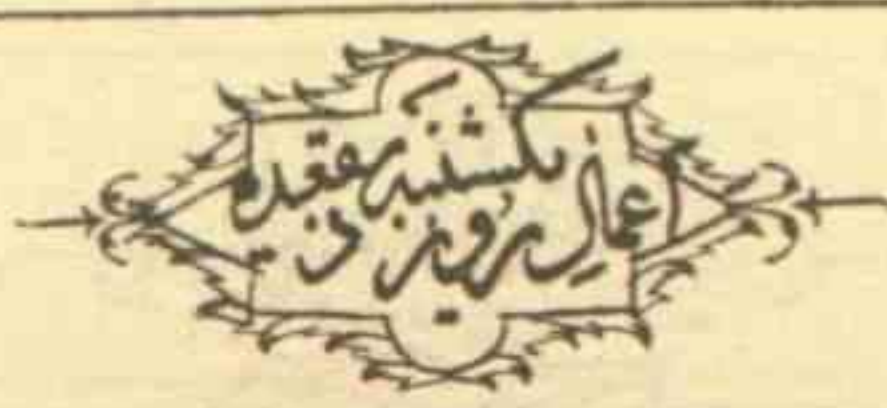 اعمالِ روز یکشنبه ذیقعده